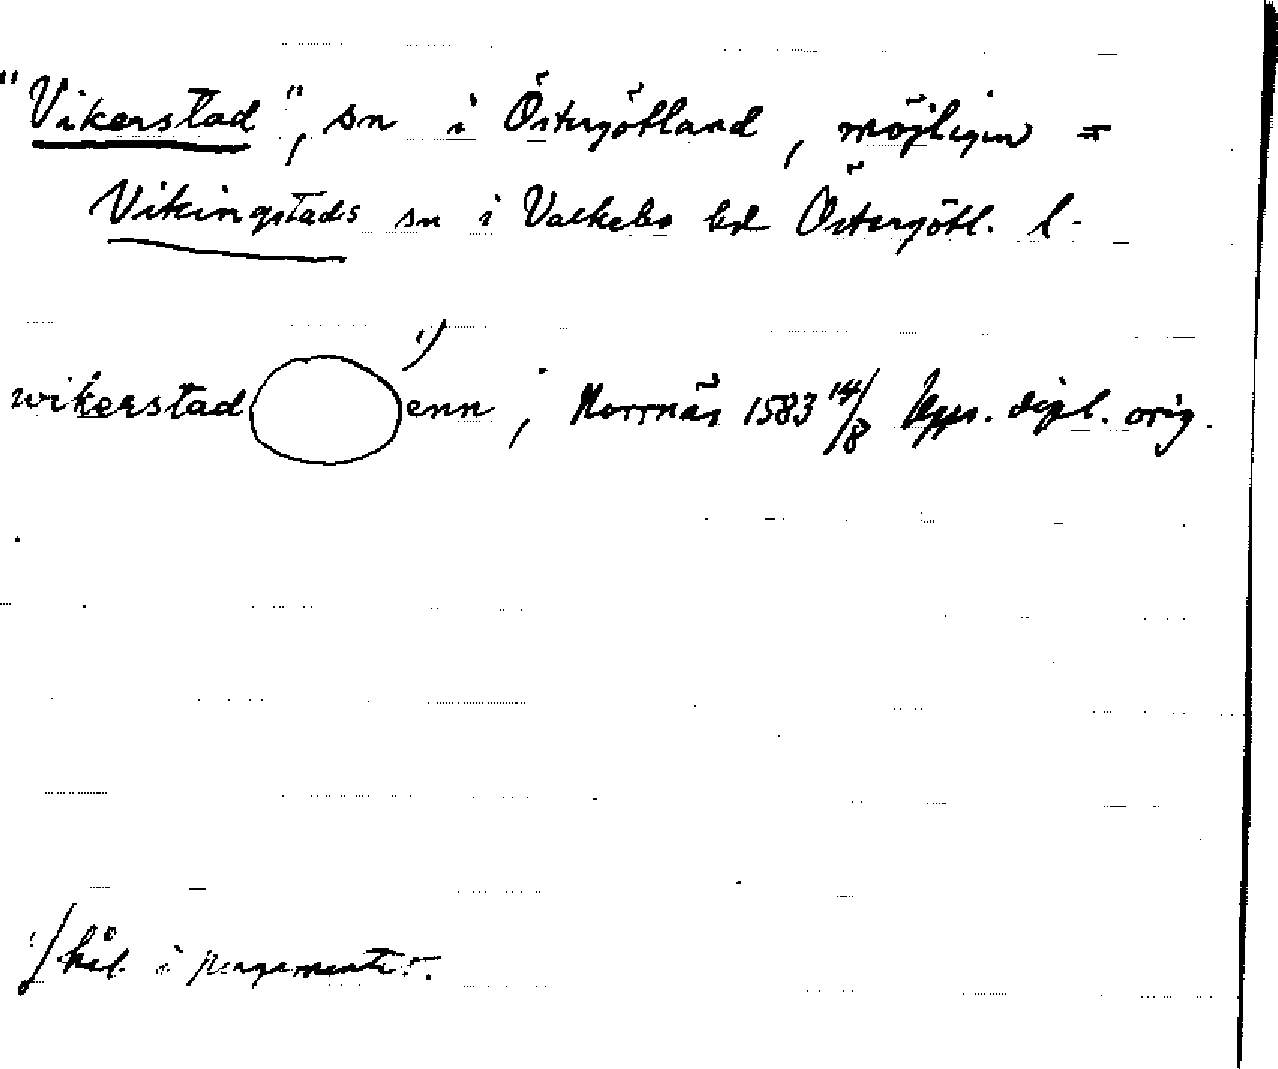 "Vikerstad", sn i Östergötland, möjligen =
Vikingstads sn i Valkebo hd Östergötl. l.
wikerstad enn 1), Norrnäs 1583 14/8 Upps. dipl. orig.
1) hål i pergamentet.